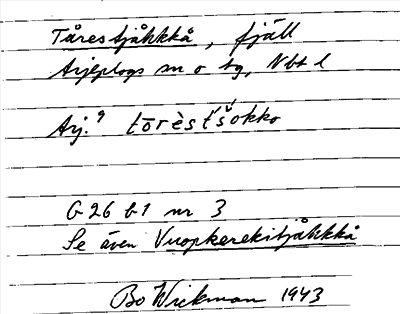 Tårestjåhkkå, fjäll
Arjeplogs sn o tg, Nbt l
Arj. 9 tōrèstśokko
G 26 b 1 nr 3
Se även Vuopkerekitjåhkkå
Bo Wickman 1943